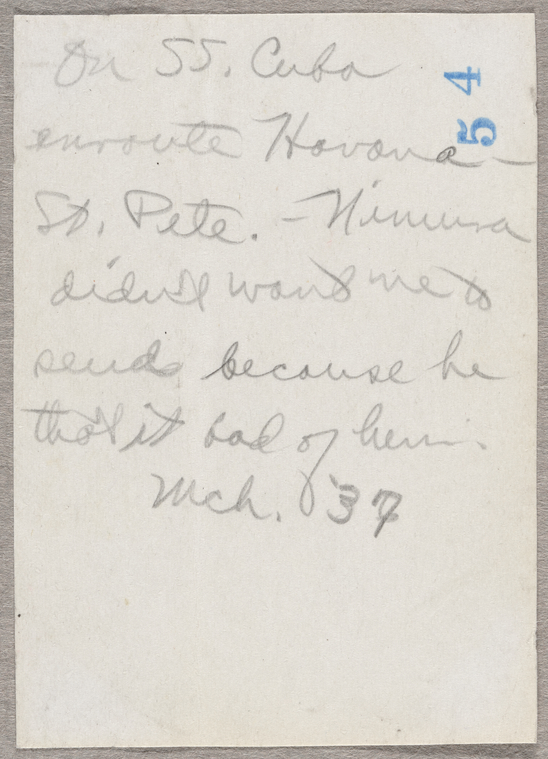 On SS. Cuba
enroute Havana -
St. Pete. - Nimura
didn't want me to
send because he
tho't it bad of him.
Mch. '37
54